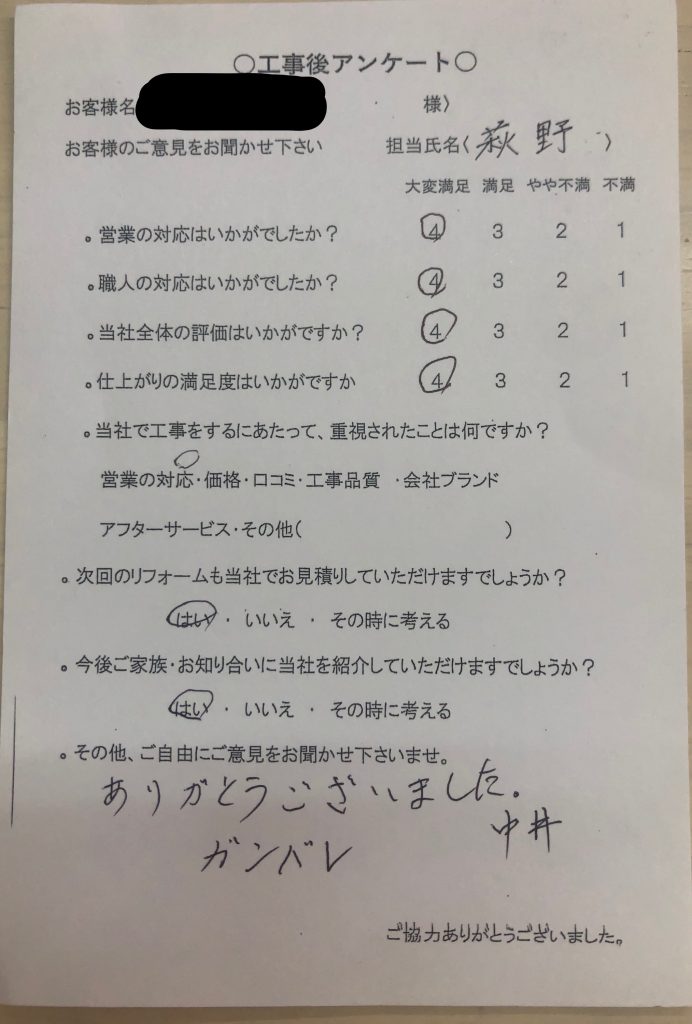 ○工事後アンケート○
お客様名 様）
お客様のご意見をお聞かせ下さい 担当氏名（萩野）
大変満足 満足 やや不満 不満
。営業の対応はいかがでしたか？ 4 3 2 1
。職人の対応はいかがでしたか？ 4 3 2 1
。当社全体の評価はいかがですか？ 4 3 2 1
。仕上がりの満足度はいかがですか 4 3 2 1
。当社で工事をするにあたって、重視されたことは何ですか？
営業の対応・価格・口コミ・工事品質 ・会社ブランド
アフターサービス・その他（ ）
。次回のリフォームも当社でお見積りしていただけますでしょうか？
はい ・ いいえ ・ その時に考える
。今後ご家族・お知り合いに当社を紹介していただけますでしょうか？
はい ・ いいえ ・ その時に考える
。その他、ご自由にご意見をお聞かせ下さいませ。
ありがとうございました。
中井
ガンバレ
ご協力ありがとうございました。